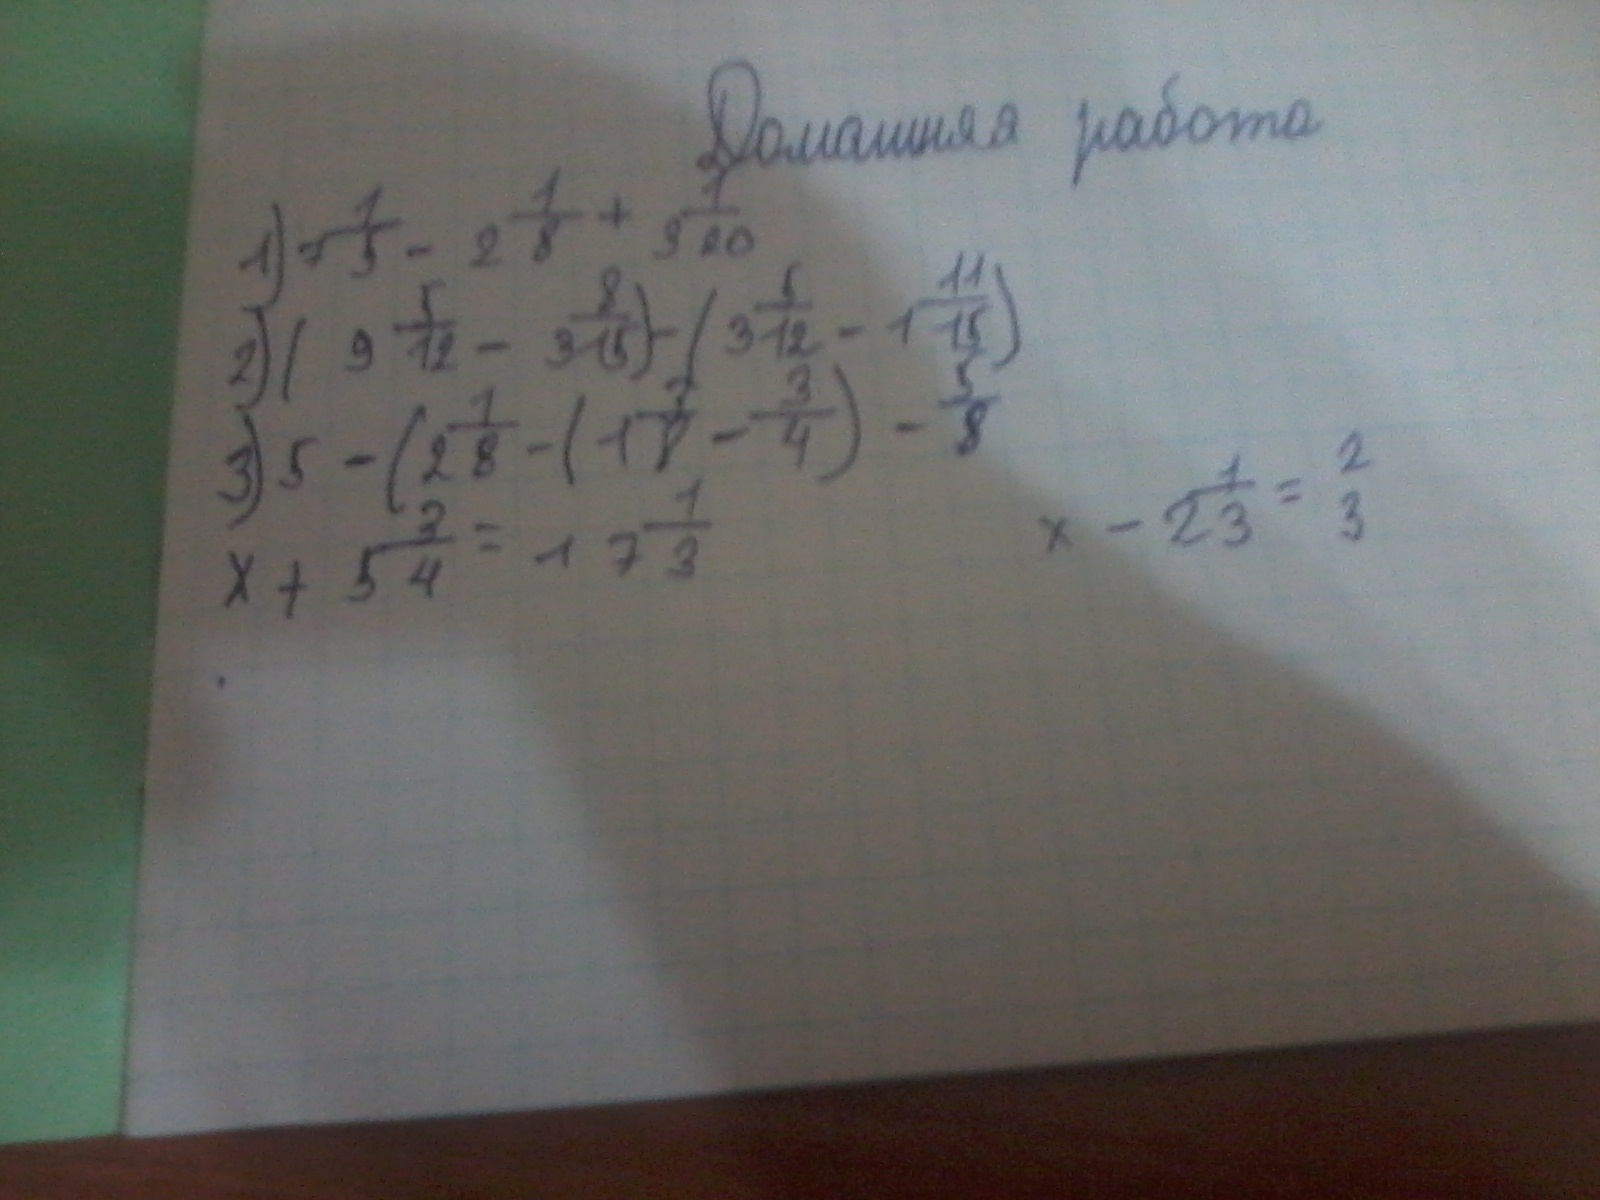 Домашняя работа
1) 7 1/5 - 2 1/8 + 3 1/20
2) ( 9 5/12 - 3 8/15) - ( 3 5/12 - 1 11/15 )
3) 5 - ( 2 1/8 - ( 1 7/8 - 3/4 ) - 3/8
x + 5 3/4 = 17 1/3
x - 2 1/3 = 2/3